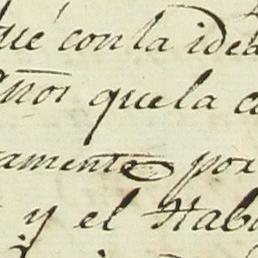 qué con la idea
años que la c
amente por
y el Habi